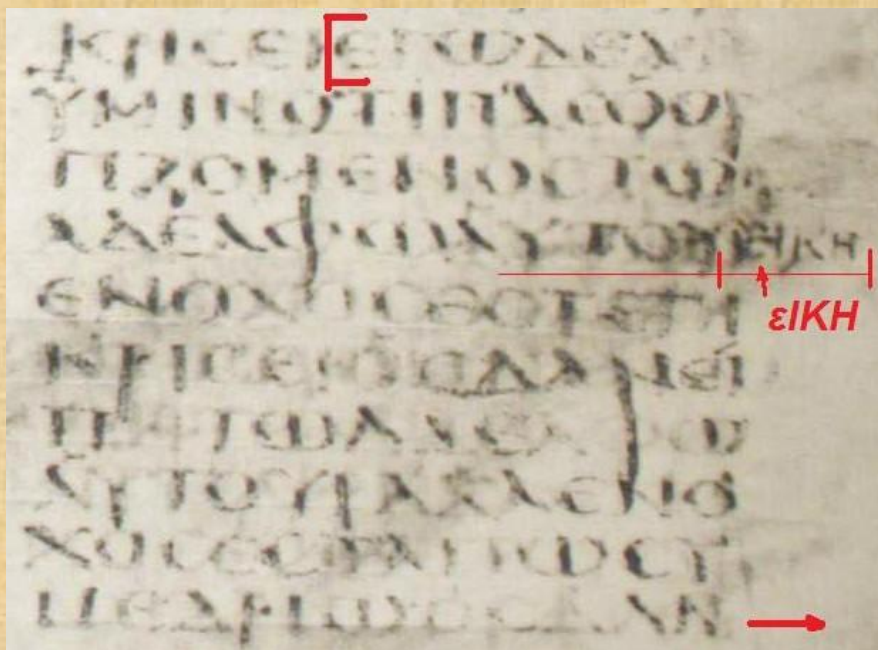 ΚΡΙCΕΙΕΓΩΔΕΛ
ΥΜΙΝΟΤΙΠΑCΟΟΡ
ΓΙΖΟΜΕΝΟCΤΩ
ΑΔΕΛΦΩΑΥΤΟΥ ΕΙΚΗ
εΙΚΗ
ΕΝΟΧΟCΕCΤΕΤΗ
ΚΡΙCΕΙΟCΔΑΝΕΙ
ΠΗΤΩΑΔΕΛΦΩ
ΑΥΤΟΥΡΑΧΑΕΝΟ
ΧΟCΕCΤΑΙΤΩCΥ
ΝΕΔΡΙΩΟCΔΑΝ